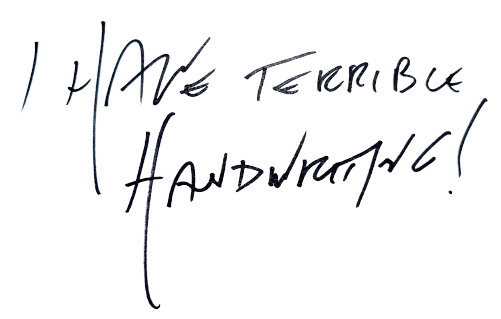 I HAVE TERRIBLE
HANDWRITING!